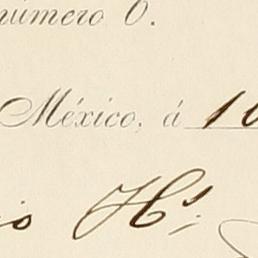 número 6.
México, á 10
io Hs.